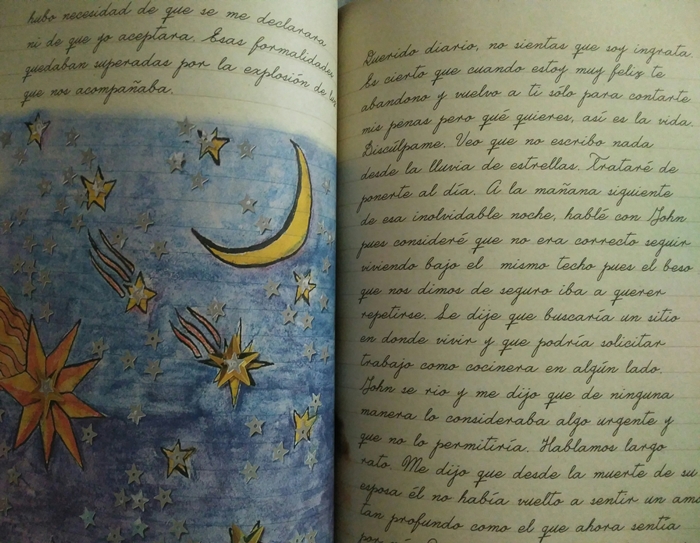 hubo necesidad de que se me declarara
ni de que yo aceptara. Esas formalidades
quedaban superadas por la explosión de
que nos acompañaba.
Querido diario, no sientas que soy ingrata.
Es cierto que cuando estoy muy feliz te
abandono y vuelvo a ti sólo para contarte
mis penas pero qué quieres, así es la vida.
Discúlpame. Veo que no escribo nada
desde la lluvia de estrellas. Trataré de
ponerte al día. A la mañana siguiente
de esa inolvidable noche, hablé con John
pues consideré que no era correcto seguir
viviendo bajo el mismo techo pues el beso
que nos dimos de seguro iba a querer
repetirse. Le dije que buscaría un sitio
en donde vivir y que podría solicitar
trabajo como cocinera en algún lado.
John se rio y me dijo que de ninguna
manera lo consideraba algo urgente y
que no lo permitiría. Hablamos largo
rato. Me dijo que desde la muerte de su
esposa él no había vuelto a sentir un
tan profundo como el que ahora sentía